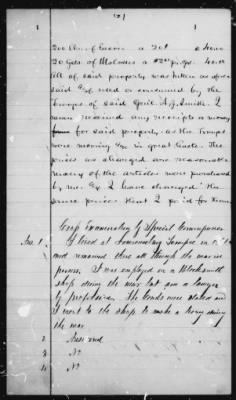 (2)
200 lbs. of Bacon @ 20¢ 40.00
20 Gals of Molasses
All of said property was taken as afore
said & used or consumed by the
troops of said Genl. A. J. Smith. I
never received any receipts or money
for said property, as the Troops
were moving in great haste. The
prices as charged are reasonable
many of the articles were purchased
by me & I have charged the
same prices that I paid for them
Cross Examination by Special Commissioner
Ans. 1. I lived at
and remained there all through the war in
I was employed in a Blacksmith
shop during the war but am a lawyer
by profession. The Courts were
I went to the shop to make a living during
the war.
2
3 No
4 No